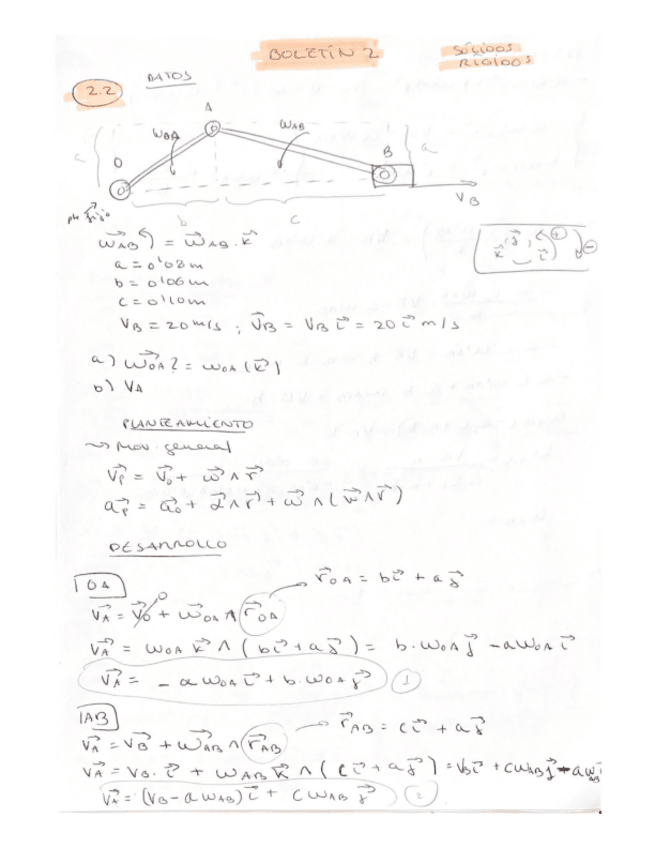 BOLETÍN 2
SÓLIDOS
RÍGIDOS
2.2
DATOS
A
ω_OA
ω_AB
B
a
a
O
b
c
V_B
pto fijo
ω⃗_AB) = ω⃗_AB · k⃗
j⃗ +
k⃗ i⃗ -
a = 0'08 m
b = 0'06 m
c = 0'10 m
V_B = 20 m/s ; V⃗_B = V_B i⃗ = 20 i⃗ m/s
a) ω⃗_OA? = ω_OA (k⃗)
b) V_A
PLANTEAMIENTO
~> Mov. general
V⃗_P = V⃗_o + ω⃗ ∧ r⃗
a⃗_P = a⃗_o + α⃗ ∧ r⃗ + ω⃗ ∧ (ω⃗ ∧ r⃗)
DESARROLLO
OA
r⃗_OA = b i⃗ + a j⃗
V⃗_A = V⃗_O + ω⃗_OA ∧ r⃗_OA
0
V⃗_A = ω_OA k⃗ ∧ (b i⃗ + a j⃗) = b · ω_OA j⃗ - a ω_OA i⃗
V⃗_A = - a ω_OA i⃗ + b · ω_OA j⃗ 1
AB
r⃗_AB = c i⃗ + a j⃗
V⃗_A = V⃗_B + ω⃗_AB ∧ r⃗_AB
V⃗_A = V_B · i⃗ + ω_AB k⃗ ∧ (c i⃗ + a j⃗) = V_B i⃗ + c ω_AB j⃗ - a ω_AB i
V⃗_A = (V_B - a ω_AB) i⃗ + c ω_AB j⃗ 2